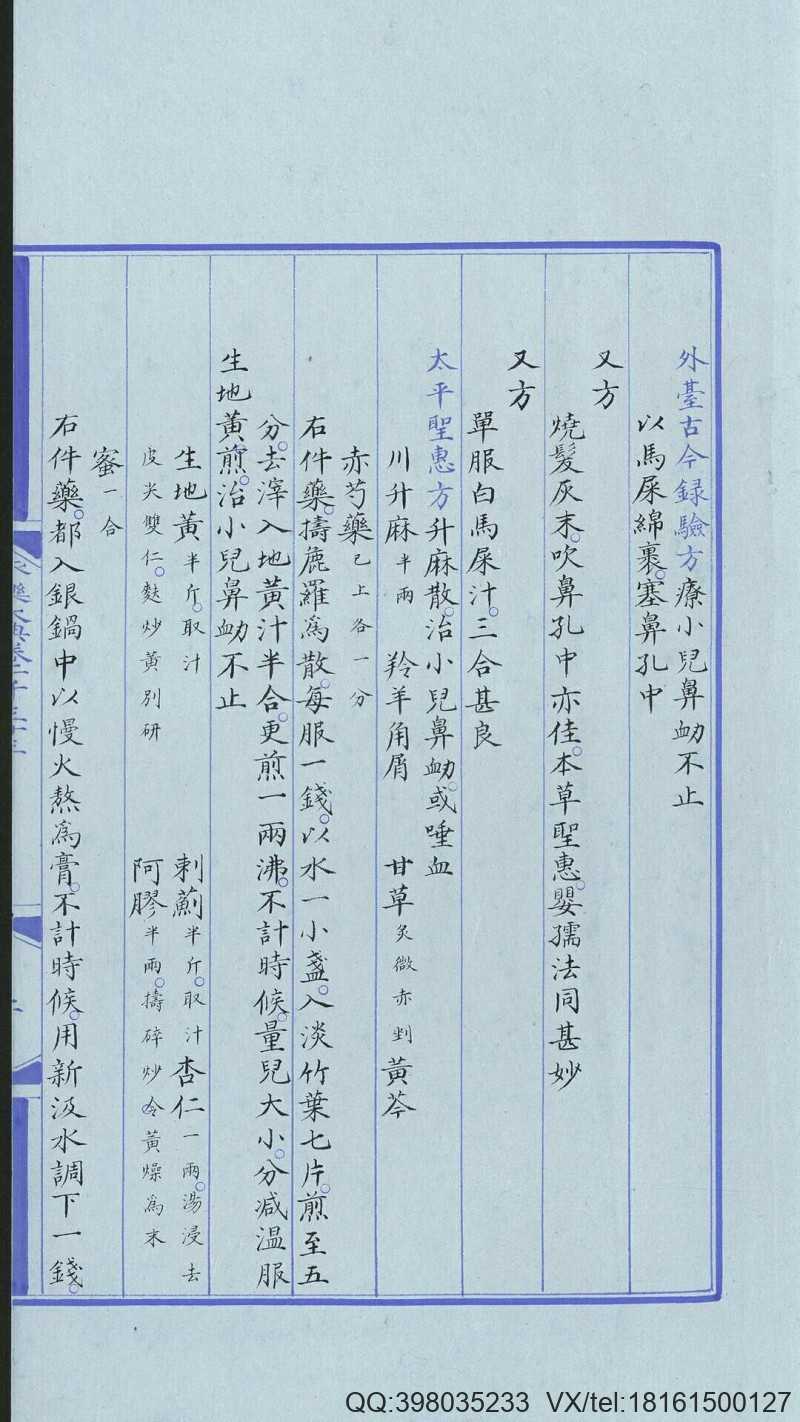 外臺古今録驗方療小兒鼻衂不止
以馬屎綿裹。塞鼻孔中
又方
燒髮灰末。吹鼻孔中亦佳。本草聖惠。嬰孺法同甚妙
又方
單服白馬屎汁。三合甚良
太平聖惠方升麻散。治小兒鼻衂。或唾血
川升麻半兩 羚羊角屑 甘草炙微赤剉 黃芩
赤芍藥已上各一分
右件藥。擣麄羅爲散。每服一錢。以水一小盞。入淡竹葉七片。煎至五
分。去滓入地黃汁半合。更煎一兩沸。不計時候。量兒大小。分减温服
生地黃煎。治小兒鼻衂不止
生地黃半斤。取汁 刺薊半斤。取汁 杏仁一兩。湯浸去
皮尖雙仁。麩炒黃別研 阿膠半兩。擣碎炒令黃燥爲末
蜜一合
右件藥。都入銀鍋中以慢火熬爲膏。不計時候。用新汲水調下一錢。
永樂大典卷一千三十三
QQ:398035233 VX/tel:18161500127